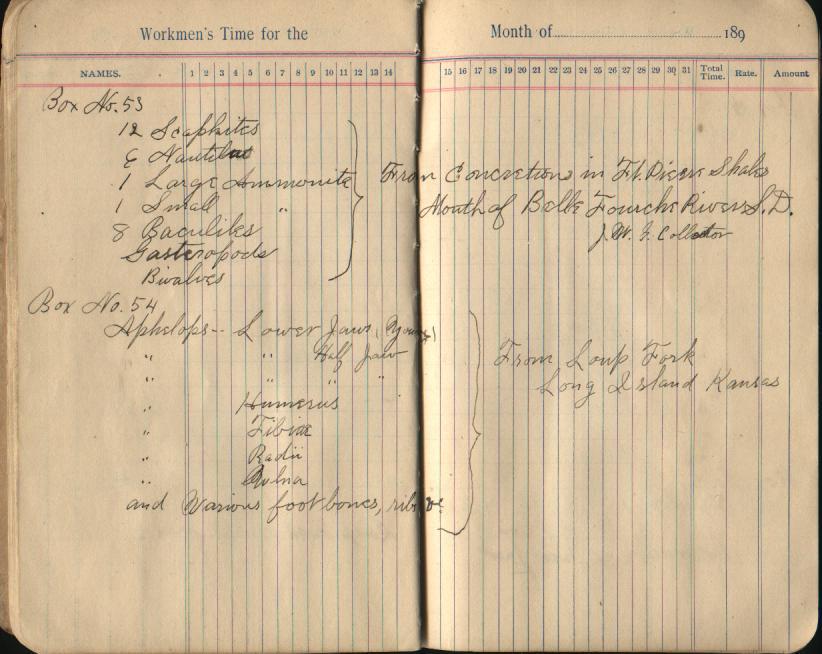 Workmen's Time for the
Month of 189
NAMES. 1 2 3 4 5 6 7 8 9 10 11 12 13 14
15 16 17 18 19 20 21 22 23 24 25 26 27 28 29 30 31 Total Time. Rate. Amount
Box No. 53
12 Scaphites
6 Nautilus
1 Large Ammonite
1 Small "
8 Baculites
Gasteropods
Bivalves
From Concretions in Ft. Pierre Shales
Mouth of Belle Fourche River S.D.
J.W.G. Collector
Box No. 54
Aphelops -- Lower Jaws, (Young)
" " Half Jaw
" " " "
" Humerus
" Tibiae
" Radii
" Ulna
and Various foot bones, ribs &c
From Loup Fork
Long Island Kansas